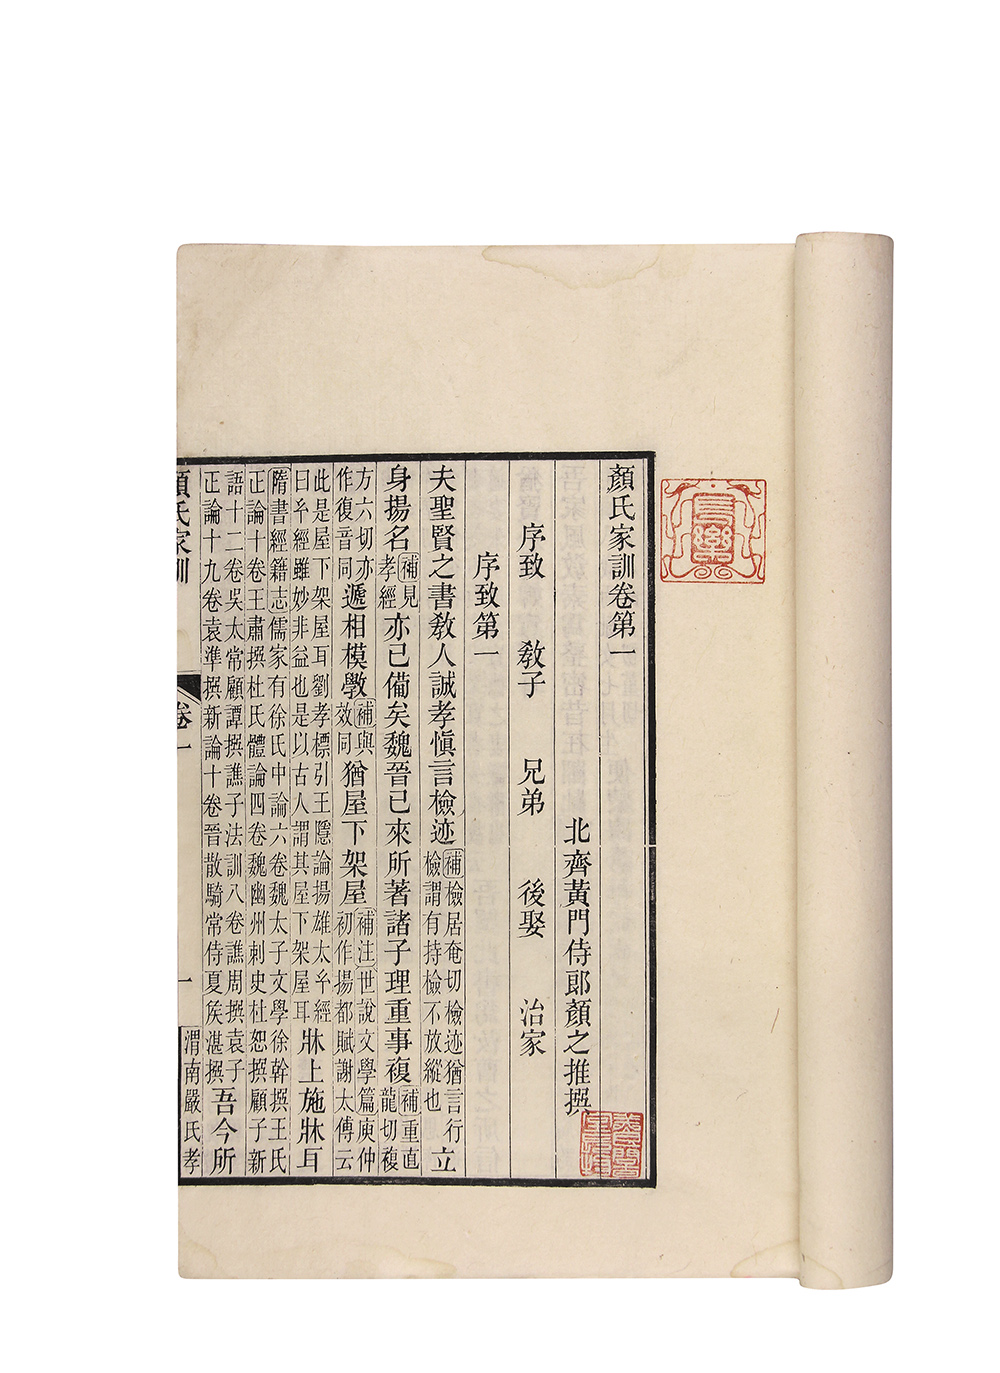 顏氏家訓卷第一
北齊黃門侍郎顏之推撰
序致 教子 兄弟 後娶 治家
序致第一
夫聖賢之書教人誠孝慎言檢迹補檢居奄切檢迹猶言行檢謂有持檢不放縱也立
身揚名補見孝經亦已備矣魏晉已來所著諸子理重事複補重直龍切複
方六切亦作復音同遞相模斆補與效同猶屋下架屋補注世說文學篇庾仲初作揚都賦謝太傅云
此是屋下架屋耳劉孝標引王隱論揚雄太玄經曰玄經雖妙非益也是以古人謂其屋下架屋耳牀上施牀耳
隋書經籍志儒家有徐氏中論六卷魏太子文學徐幹撰王氏正論十卷王肅撰杜氏體論四卷魏幽州刺史杜恕撰顧子新
語十二卷吳太常顧譚撰譙子法訓八卷譙周撰袁子正論十九卷袁準撰新論十卷晉散騎常侍夏矦湛撰吾今所
顏氏家訓 卷一 一 渭南嚴氏孝